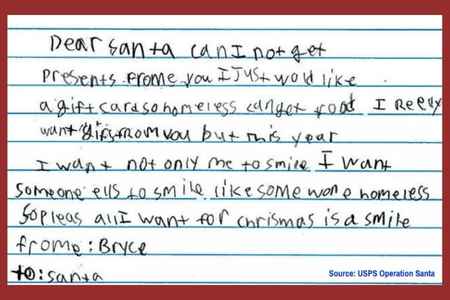 Dear santa can I not get
presents frome you I Just would like
a gift card so homeless can get food I Reely
want gifts from you but this year
I want not only me to smile I want
someone ells to smile like some wone homeless
so pleas all I want for chrismas is a smile
frome: Bryce
to: santa
Source: USPS Operation Santa